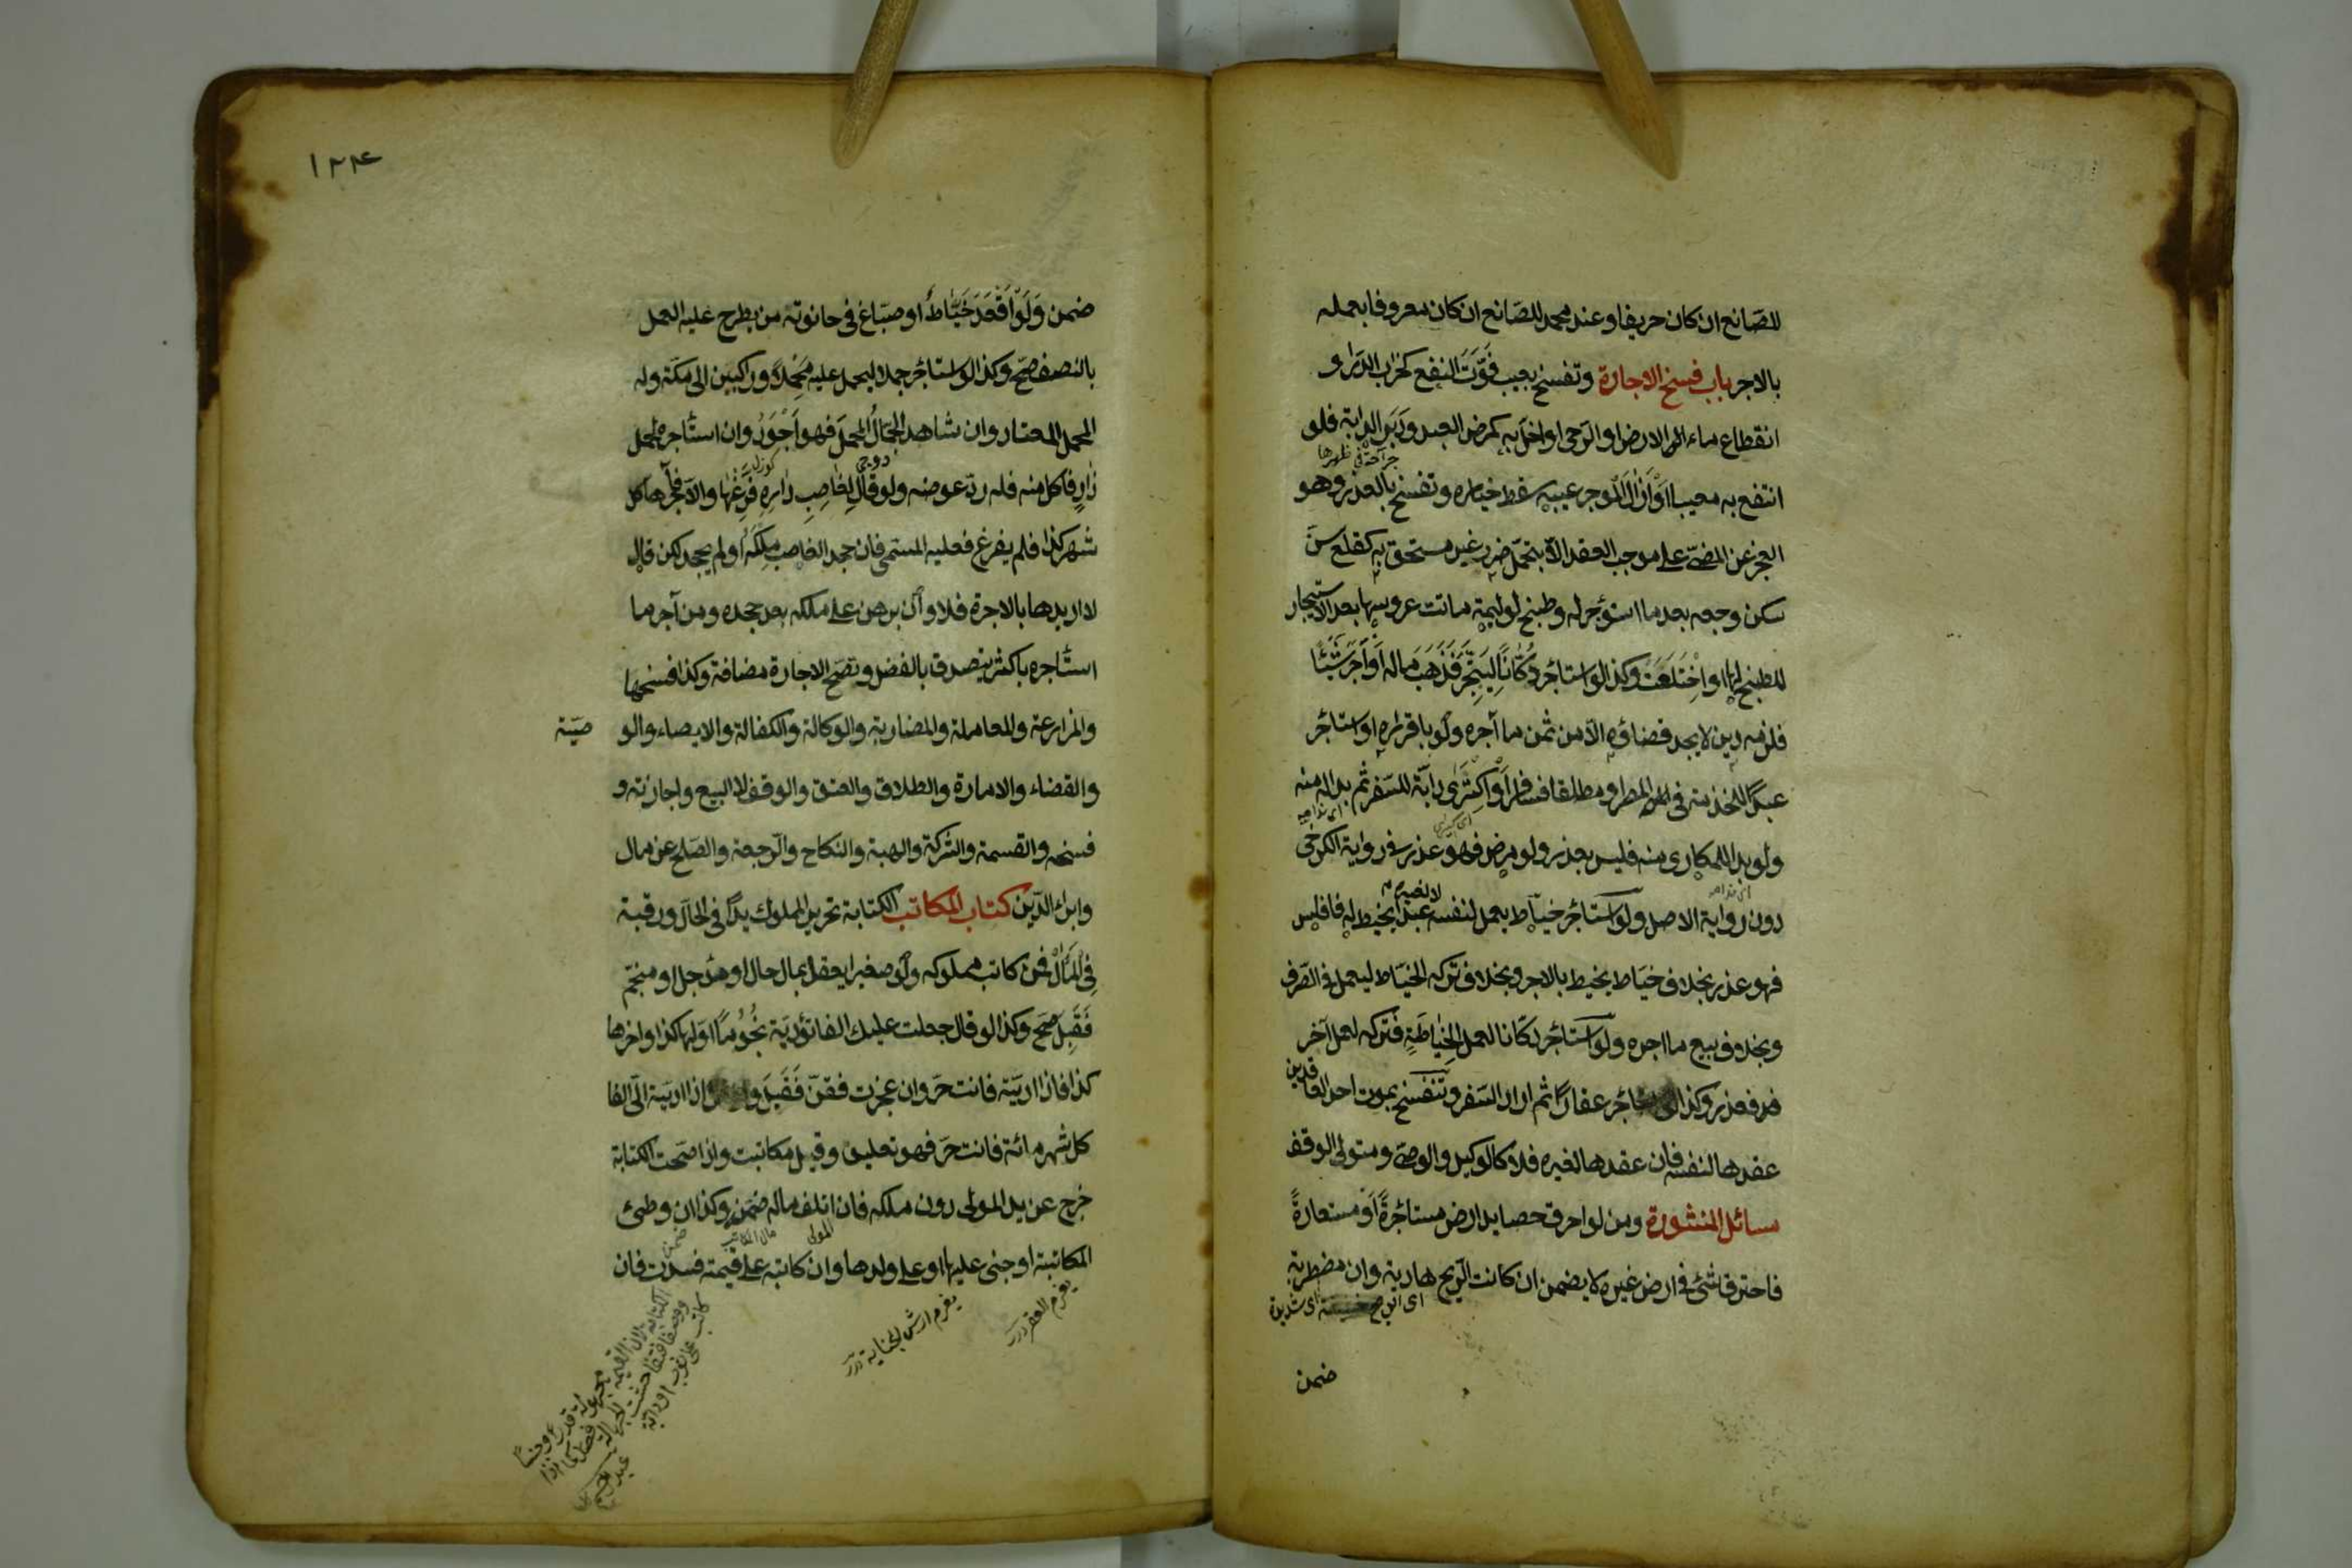 للصانع ان كان حريفا وعند محمد للصانع ان كان معروفا بعمله
بالاجر باب فسخ الاجارة وتفسخ بعيب فَوَّتَ النفع كخراب الدار و
انقطاع ماء الارض او الرحى او اخل به كمرض العبد ودَبَر الدابة فلو
جراحة في ظهرها
انتفع به معيبا اَوْ اَزَالَ الموجر عيبه سقط خياره وتفسخ بالعذر وهو
العجز عن المضيّ على موجب العقد الّا بتحمّل ضرر غير مستحق به كقلع سنّ
سكن وجعه بعد ما استؤجر له وطبخ لوليمة ماتت عروسها بعد الاستيجار
للطبخ لها او اخْتَلَعَتْ وكذا لو استأجر دُكّانًا لِيَتّجِرَ فَذَهَبَ ماله اَوْ آجَرَ شَيْئًا
فلزمه دين لا يجد قضاؤه الّا من ثمن ما آجره ولو باقراره او استأجر
عبدًا للخدمة في المصر او مطلقا فسافر اَوْ اكْتَرَى دابّة للسّفر ثم بدا له منه
ولو بدا للمكارى منه فليس بعذر ولو مرض فهو عذر في رواية الكرخى
دون رواية الاصل ولو استأجر خيّاط يعمل لنفسه عبدا يخيط له فافلس
لا لغيره
فهو عذر بخلاف خيّاط يخيط بالاجر وبخلاف تركه الخيّاط ليعمل في الصّرف
وبخلاف بيع ما اجره ولو استأجر دكّانا لعمل الخِيَاطَةِ فتركه لعمل آخر
فعذر وكذا لو استأجر عقارًا ثم اراد السّفر وتَنْفَسخ بموت احد العاقدين
عقدها لنفسه فان عقدها لغيره فلا كالوكيل والوصىّ ومتولى الوقف
مسائل المنثورة ومن لو احرق حصايد ارض مستأجرةً اَوْ مستعارةً
فاحترق شئ في ارض غيره لا يضمن ان كانت الرّيح هادية وان مضطربة
اى شديدة
ضمن
١٢٤
ضمن وَلَوْ اَقْعَدَ خَيَّاطٌ او صبّاغ في حانوته من يطرح عليه العمل
بالنصف صحّ وكذا لو استأجر جملا ليحمل عليه مَحْمِلًا وراكبين الى مكّة وله
المحمل المعتاد وان شاهد الجَمّالُ المحملَ فهو اَجْوَدُ وان استأجره لحمل
زادٍ فاكل منه فله ردّ عوضه ولو قال لِغَاصِبِ دارِهِ فَرِّغْهَا والّا فأجرها كل
شهر كذا فلم يفرغ فعليه المسمى فان جحد الغاصب مِلْكَهُ او لم يجحد لكن قال
لا اريدها بالاجرة فلا وان برهن على ملكه بعد جحده ومن آجر ما
استأجره باكثر يتصدق بالفضل وتصحّ الاجارة مضافة وكذا فسخها
والمزارعة والمعاملة والمضاربة والوكالة والكفالة والايصاء والو صيّة
والقضاء والامارة والطلاق والعتق والوقف لا البيع واجازته و
فسخه والقسمة والشركة والهبة والنكاح والرّجعة والصّلح عن مال
وابراء الدّين كتاب المكاتب الكتابة تحرير المملوك يدًا في الحال ورقبة
فِي المَآلْ فمن كاتب مملوكه ولو صغيرا يعقل بمال حال او مؤجل او منجّم
فَقَبِلَ صحّ وكذا لو قال جعلت عليك الفا تؤدّيَه نُجُومًا اوّلها كذا واخرها
كذا فاذا ادّيته فانت حرّ وان عجزت فقنّ فَقَبِلَ ولو قال اذا ادّيته الىّ الفا
كل شهر مائة فانت حرّ فهو تعليق وقيل مكاتبت واذا صحّت الكتابة
خرج عن يد المولى دون ملكه فان اتلف ماله ضمن وكذا ان وطئ
المولى
مال المكاتب
المكاتبة او جنى عليها او على ولدها وان كاتبه على قيمته فسدت فان
يغرم العقر درر
يغرم ارش الجناية درر